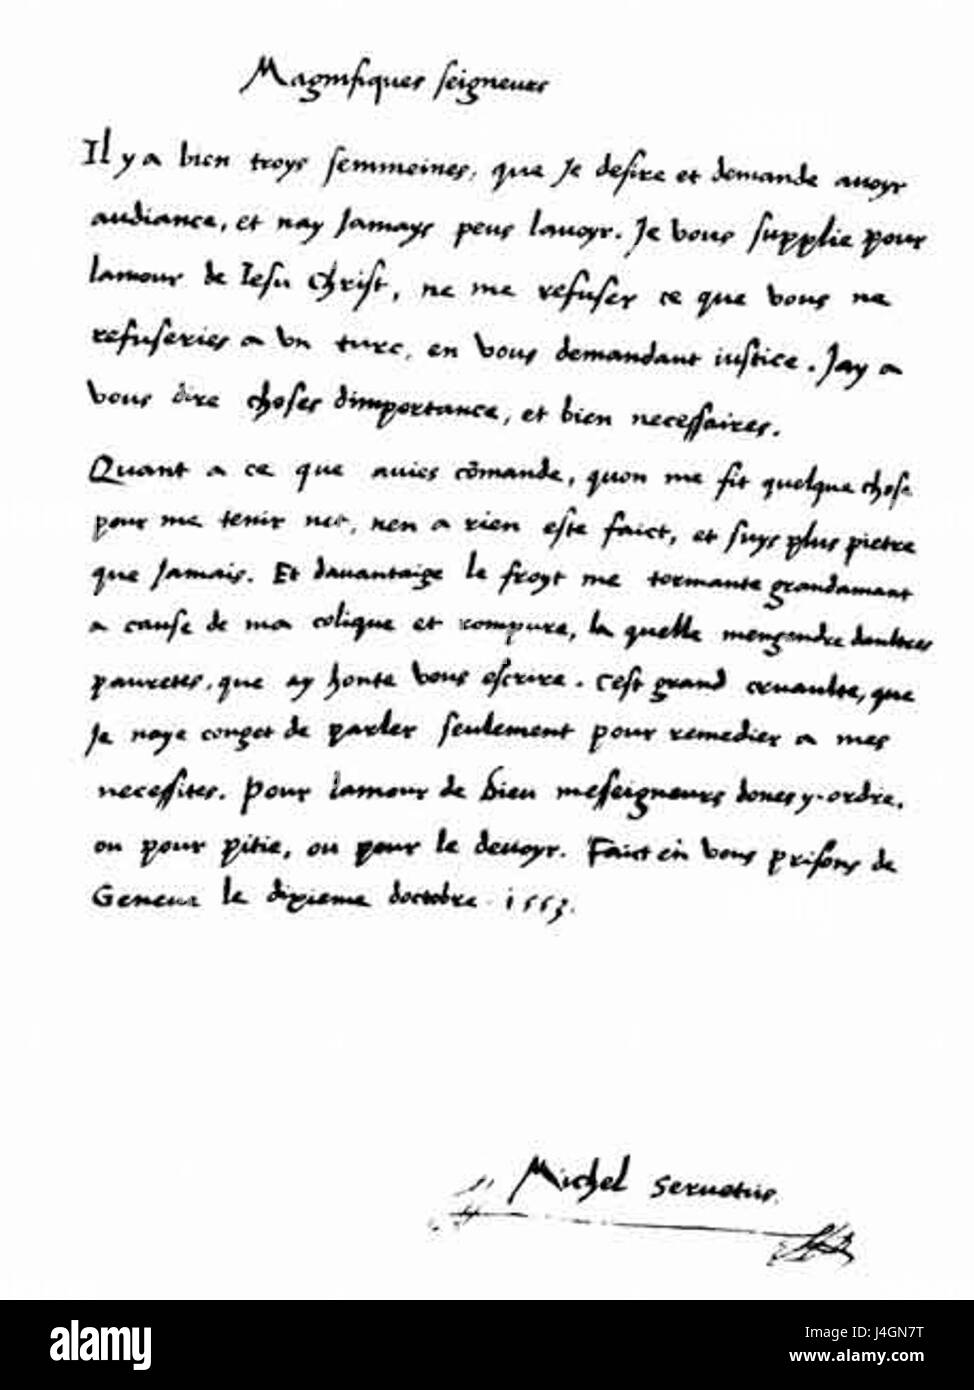 Magnifiques seigneurs
Il y a bien troys semmeines, que Je desire et demande avoyr
audiance, et nay Jamays peus lavoyr. Je vous supplie pour
lamour de Iesu christ, ne me refuser ce que vous ne
refuseries a vn turc, en vous demandant iustice. Jay a
vous dire choses dimportance, et bien necessaires.
Quant a ce que auies cõmande, quon me fit quelque chose
pour me tenir net, nen a rien este faict, et suys plus pietre
que Jamais. Et davantaige le froyt me tormante grandamant
a cause de ma colique et rompure, la quelle mengendre daultres
pauretes, que ay honte vous escrire. cest grand cruaulte, que
Je naye conget de parler seulement pour remedier a mes
necessites. Pour lamour de Dieu messeigneurs dones y ordre,
ou pour pitie, ou pour le devoyr. Faict en vous prisons de
Geneve le dixieme doctobre 1553.
Michel Servetus
alamy
Image ID: J4GN7T
www.alamy.com